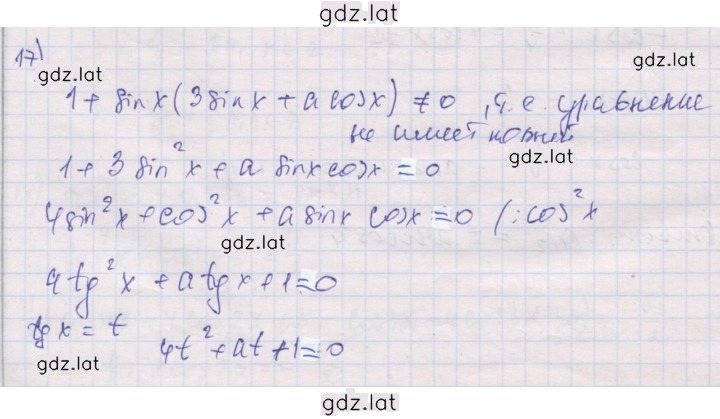 gdz.lat
17)
gdz.lat
gdz.lat
1 + sin x (3 sin x + a cos x) ≠ 0 , т. е. уравнение
не имеет корней
gdz.lat
1 + 3 sin²x + a sin x cos x = 0
4 sin²x + cos²x + a sin x cos x = 0 /: cos²x
gdz.lat
4 tg²x + a tg x + 1 = 0
gdz.lat
tg x = t
4t² + at + 1 = 0
gdz.lat
gdz.lat